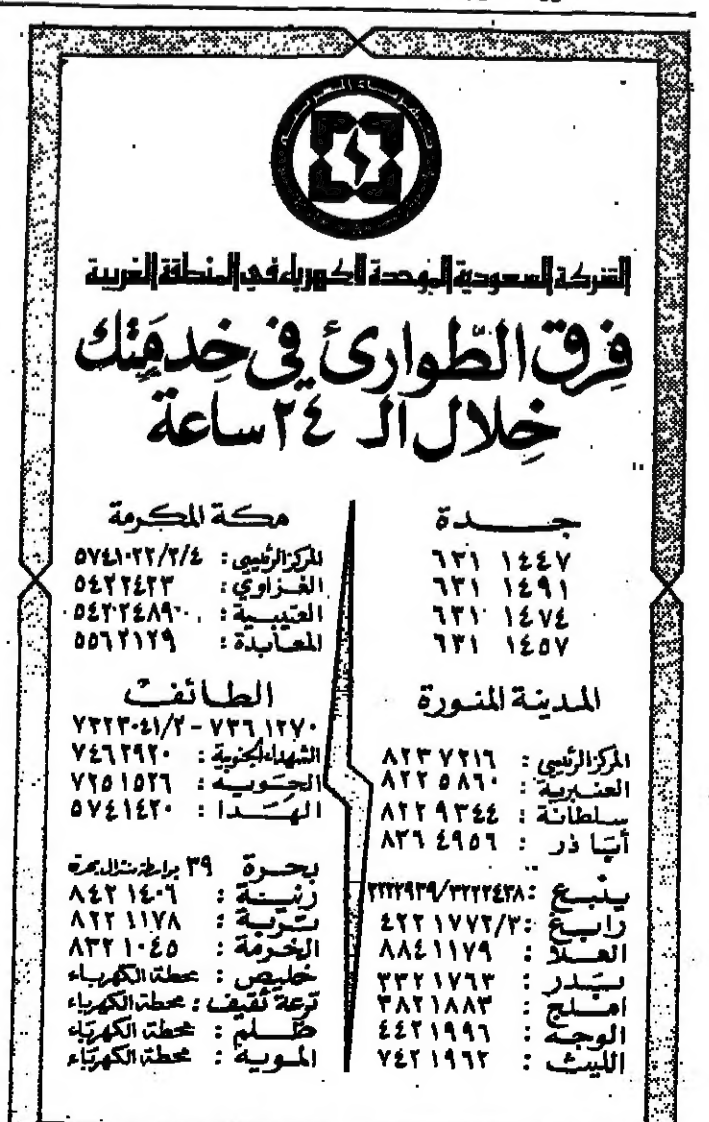 كهرباء الغربية
الشركة السعودية الموحدة للكهرباء في المنطقة الغربية
فِرق الطّوارئ في خِدمَتِك
خِلال الـ ٢٤ ساعة
جـــدة
٦٣١ ١٤٤٧
٦٣١ ١٤٩١
٦٣١ ١٤٧٤
٦٣١ ١٤٥٧
المدينة المنورة
المركز الرئيسي : ٨٢٣٧٢١٦
العنبرية : ٨٢٢٥٨٦٠
سلطانة : ٨٢٢٩٣٤٤
أبيا ذر : ٨٢٦٤٩٥٦
ينبع : ٣٢٢٢٤٣٨/٣٢٢٢٩٣٩
رابغ : ٤٢٢١٧٧٢/٣
العلا : ٨٨٤١١٧٩
بدر : ٣٣٢١٧٦٣
املج : ٣٨٢١٨٨٣
الوجه : ٤٤٢١٩٩٦
الليث : ٧٤٢١٩٦٢
مكة المكرمة
المركز الرئيسي : ٥٧٤١٠٢٢/٣/٤
الغزاوي : ٥٤٢٢٤٢٣
العتيبية : ٥٤٢٢٤٨٩
المعابدة : ٥٥٦٢١٢٩
الطائف
٧٣٦١٢٧٠ - ٧٣٢٣٠٤١/٢
الشهداء الجنوبية : ٧٤٦٢٩٢٠
الحوية : ٧٢٥١٥٢٦
الهَدا : ٥٧٤١٤٢٠
بحرة ٣٩ بواسطة سنترال بحرة
رنية : ٨٤٢١٤٠٦
تربة : ٨٢٢١١٧٨
الخرمة : ٨٣٢١٠٤٥
خليص : محطة الكهرباء
ترعة ثقيف : محطة الكهرباء
ظلم : محطة الكهرباء
المويه : محطة الكهرباء